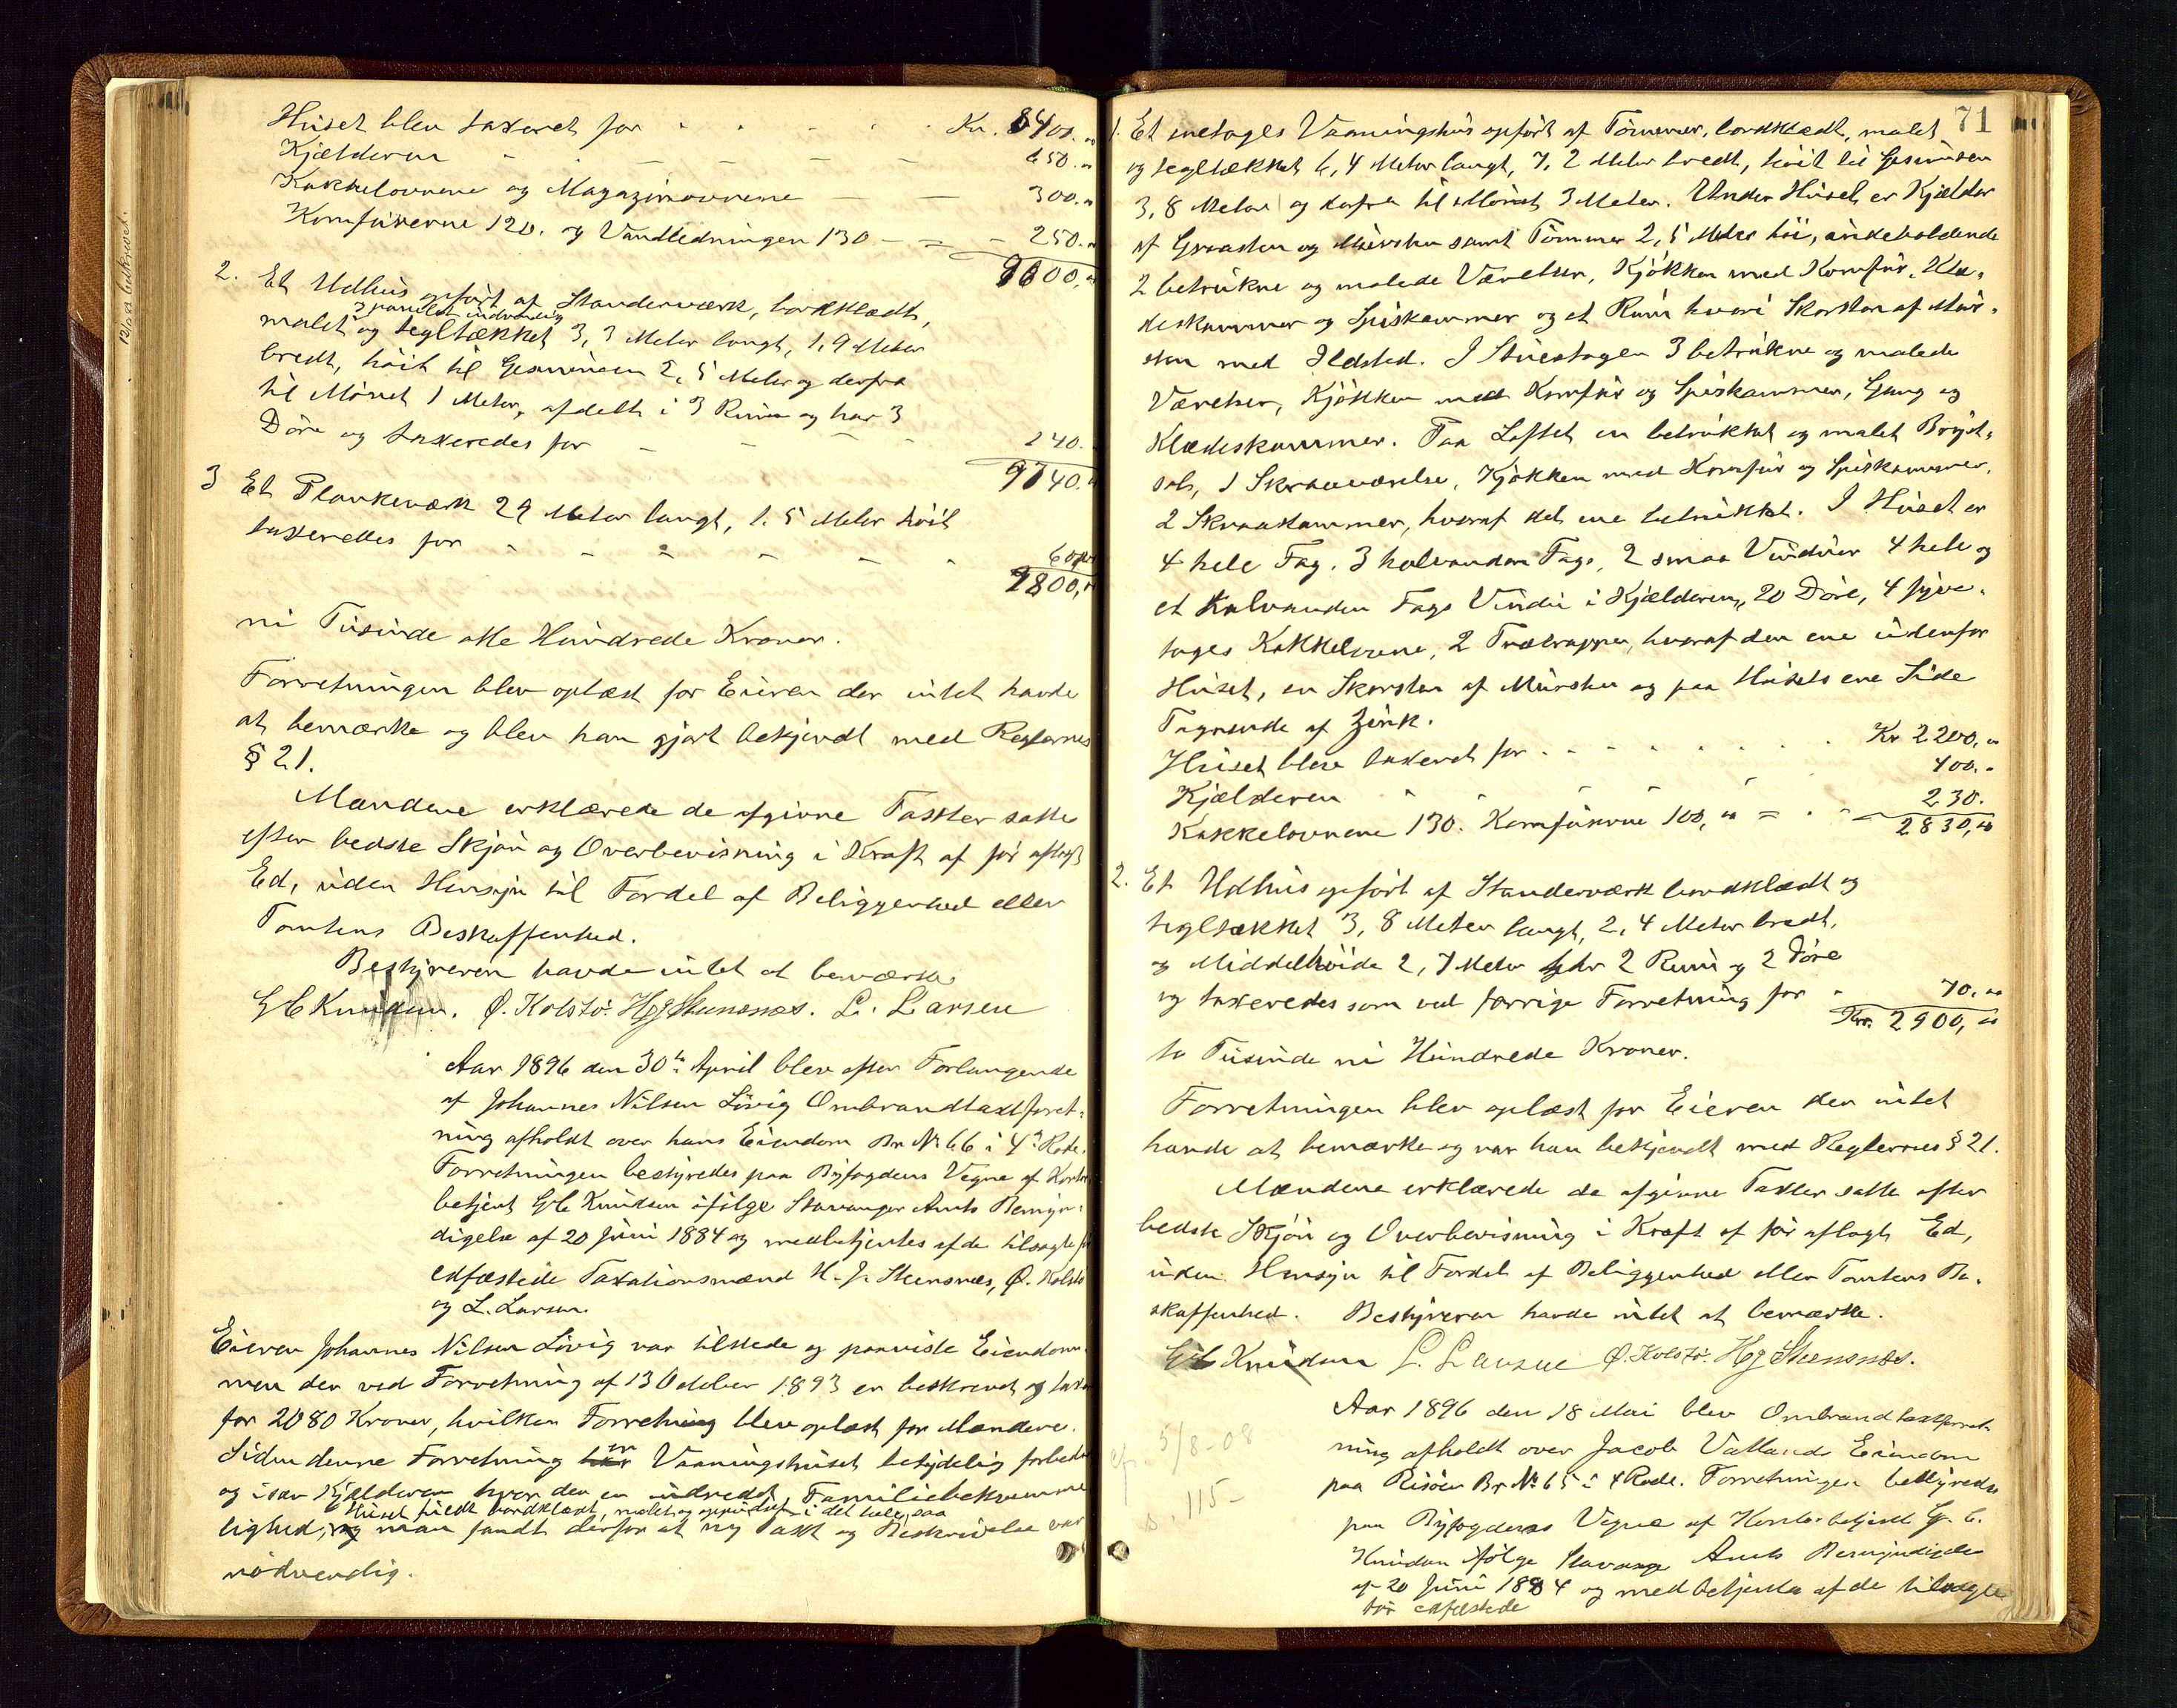 Huset blev taxeret for - - - - - Kr. 8400.00
Kjælderen - - - - - - 650.00
Kakkelovnene og Magazinovnene — — 300.00
Komfurerne 120. og Vandledningen 130 - = - 250.00
9600,00
2. Et Udhus opført af Standerværk, bordklædt,
panelet indvendig
malet og tegltækket 3,3 Meter langt, 1,9 Meter
bredt, høit til Gesimsen 2,5 Meter og derfra
til Mønet 1 Meter, afdelt i 3 Rum og har 3
Døre og taxeredes for - - - - 140.
9740.00
3 Et Plankeværk 29 Meter langt, 1.5 Meter høit
taxeredes for - - - - - 60,00
9800,00
ni Tusinde otte Hundrede Kroner.
Forretningen blev oplæst for Eieren der intet havde
at bemærke og blev han gjort bekjendt med Reglernes
§ 21.
Mændene erklærede de afgivne Taxter satte
efter bedste Skjøn og Overbevisning i Kraft af før aflagt
Ed, uden Hensyn til Fordel af Beliggenhed eller
Tomtens Beskaffenhed.
Bestyreren havde intet at bemærke
G C Knudsen. Ø. Kolstø. H J Steensnæs. L. Larsen
Aar 1896 den 30te April blev efter Forlangende
af Johannes Nilsen Løvig Ombrandtaxtforret-
ning afholdt over hans Eiendom Br No 66 i 4de Rode.
Forretningen bestyredes paa Byfogdens Vegne af Kontor
betjent G C Knudsen ifølge Stavanger Amts Bemyn-
digelse af 20 Juni 1884 og medbetjentes af de tilsagte før
edfæstede Taxationsmænd H. J. Steensnæs, Ø. Kolstø
og L. Larsen.
Eieren Johannes Nilsen Løvig var tilstede og paaviste Eiendom-
men der ved Forretning af 13 October 1893 er beskrevet og taxeret
for 2080 Kroner, hvilken Forretning blev oplæst for Mændene.
Siden denne Forretning er Vaaningshuset betydelig forbedret
og især Kjælderen hvor der er indredet Familiebekvemme
Huset fuldt bordklædt, malet og oppudset i det hele, saa
lighed, og man fandt derfor at ny Taxt og Beskrivelse var
nødvendig.
71
1. Et enetages Vaaningshus opført af Tømmer, bordklædt, malet
og tegltækket 6,4 Meter langt, 7,2 Meter bredt, høit til Gesimsen
3,8 Meter og derfra til Mønet 3 Meter. Under Huset er Kjælder
af Graasten og Mursten samt Tømmer 2,5 Meter høi, indeholdende
2 betrukne og malede Værelser, Kjøkken med Komfur, Klæ-
deskammer og Spiskammer og et Rum hvori Skorsten af Mur-
sten med Ildsted. I Stueetagen 3 betrukne og malede
Værelser, Kjøkken med Komfur og Spiskammer, Gang og
Klædeskammer. Paa Loftet en betrukket og malet Bryst-
sal, 1 Skraaværelse, Kjøkken med Komfur og Spiskammer,
2 Skraakammer, hvoraf det ene betrukket. I Huset er
4 hele Fag, 3 halvanden Fags, 2 smaa Vinduer 4 hele og
et halvanden Fags Vindu i Kjælderen, 20 Døre, 4 fyre-
tages Kakkelovne, 2 Trætrapper, hvoraf den ene udenfor
Huset, en Skorsten af Mursten og paa Husets ene Side
Tagrende af Zink.
Huset blev taxeret for - - - - - - Kr 2200,00
Kjælderen - - - - - 400.-
Kakkelovnene 130. Komfurerne 100,00 = - - 230.
2830,00
2. Et Udhus opført af Standerværk bordklædt og
tegltækket 3,8 Meter langt, 2,4 Meter bredt,
og Middelhøide 2,7 Meter har 2 Rum og 2 Døre
og taxeredes som ved forrige Forretning for - 70.00
Kr. 2900,00
to Tusinde ni Hundrede Kroner.
Forretningen blev oplæst for Eieren der intet
havde at bemærke og var han bekjendt med Reglernes § 21.
Mændene erklærede de afgivne Taxter satte efter
bedste Skjøn og Overbevisning i Kraft af før aflagt Ed,
uden Hensyn til Fordel af Beliggenhed eller Tomtens Be-
skaffenhed. Bestyreren havde intet at bemærke.
G C Knudsen L. Larsen Ø. Kolstø. H J Steensnæs.
Aar 1896 den 18 Mai blev Ombrandtaxtforret-
ning afholdt over Jacob Vatlands Eiendom
cfr. 5/8-08
s. 115-
paa Risøen Br No 65 i 4 Rode. Forretningen bestyredes
paa Byfogdens Vegne af Kontorbetjent G. C.
Knudsen ifølge Stavanger Amts Bemyndigelse
af 20 Juni 1884 og medbetjentes af de tilsagte
før edfæstede